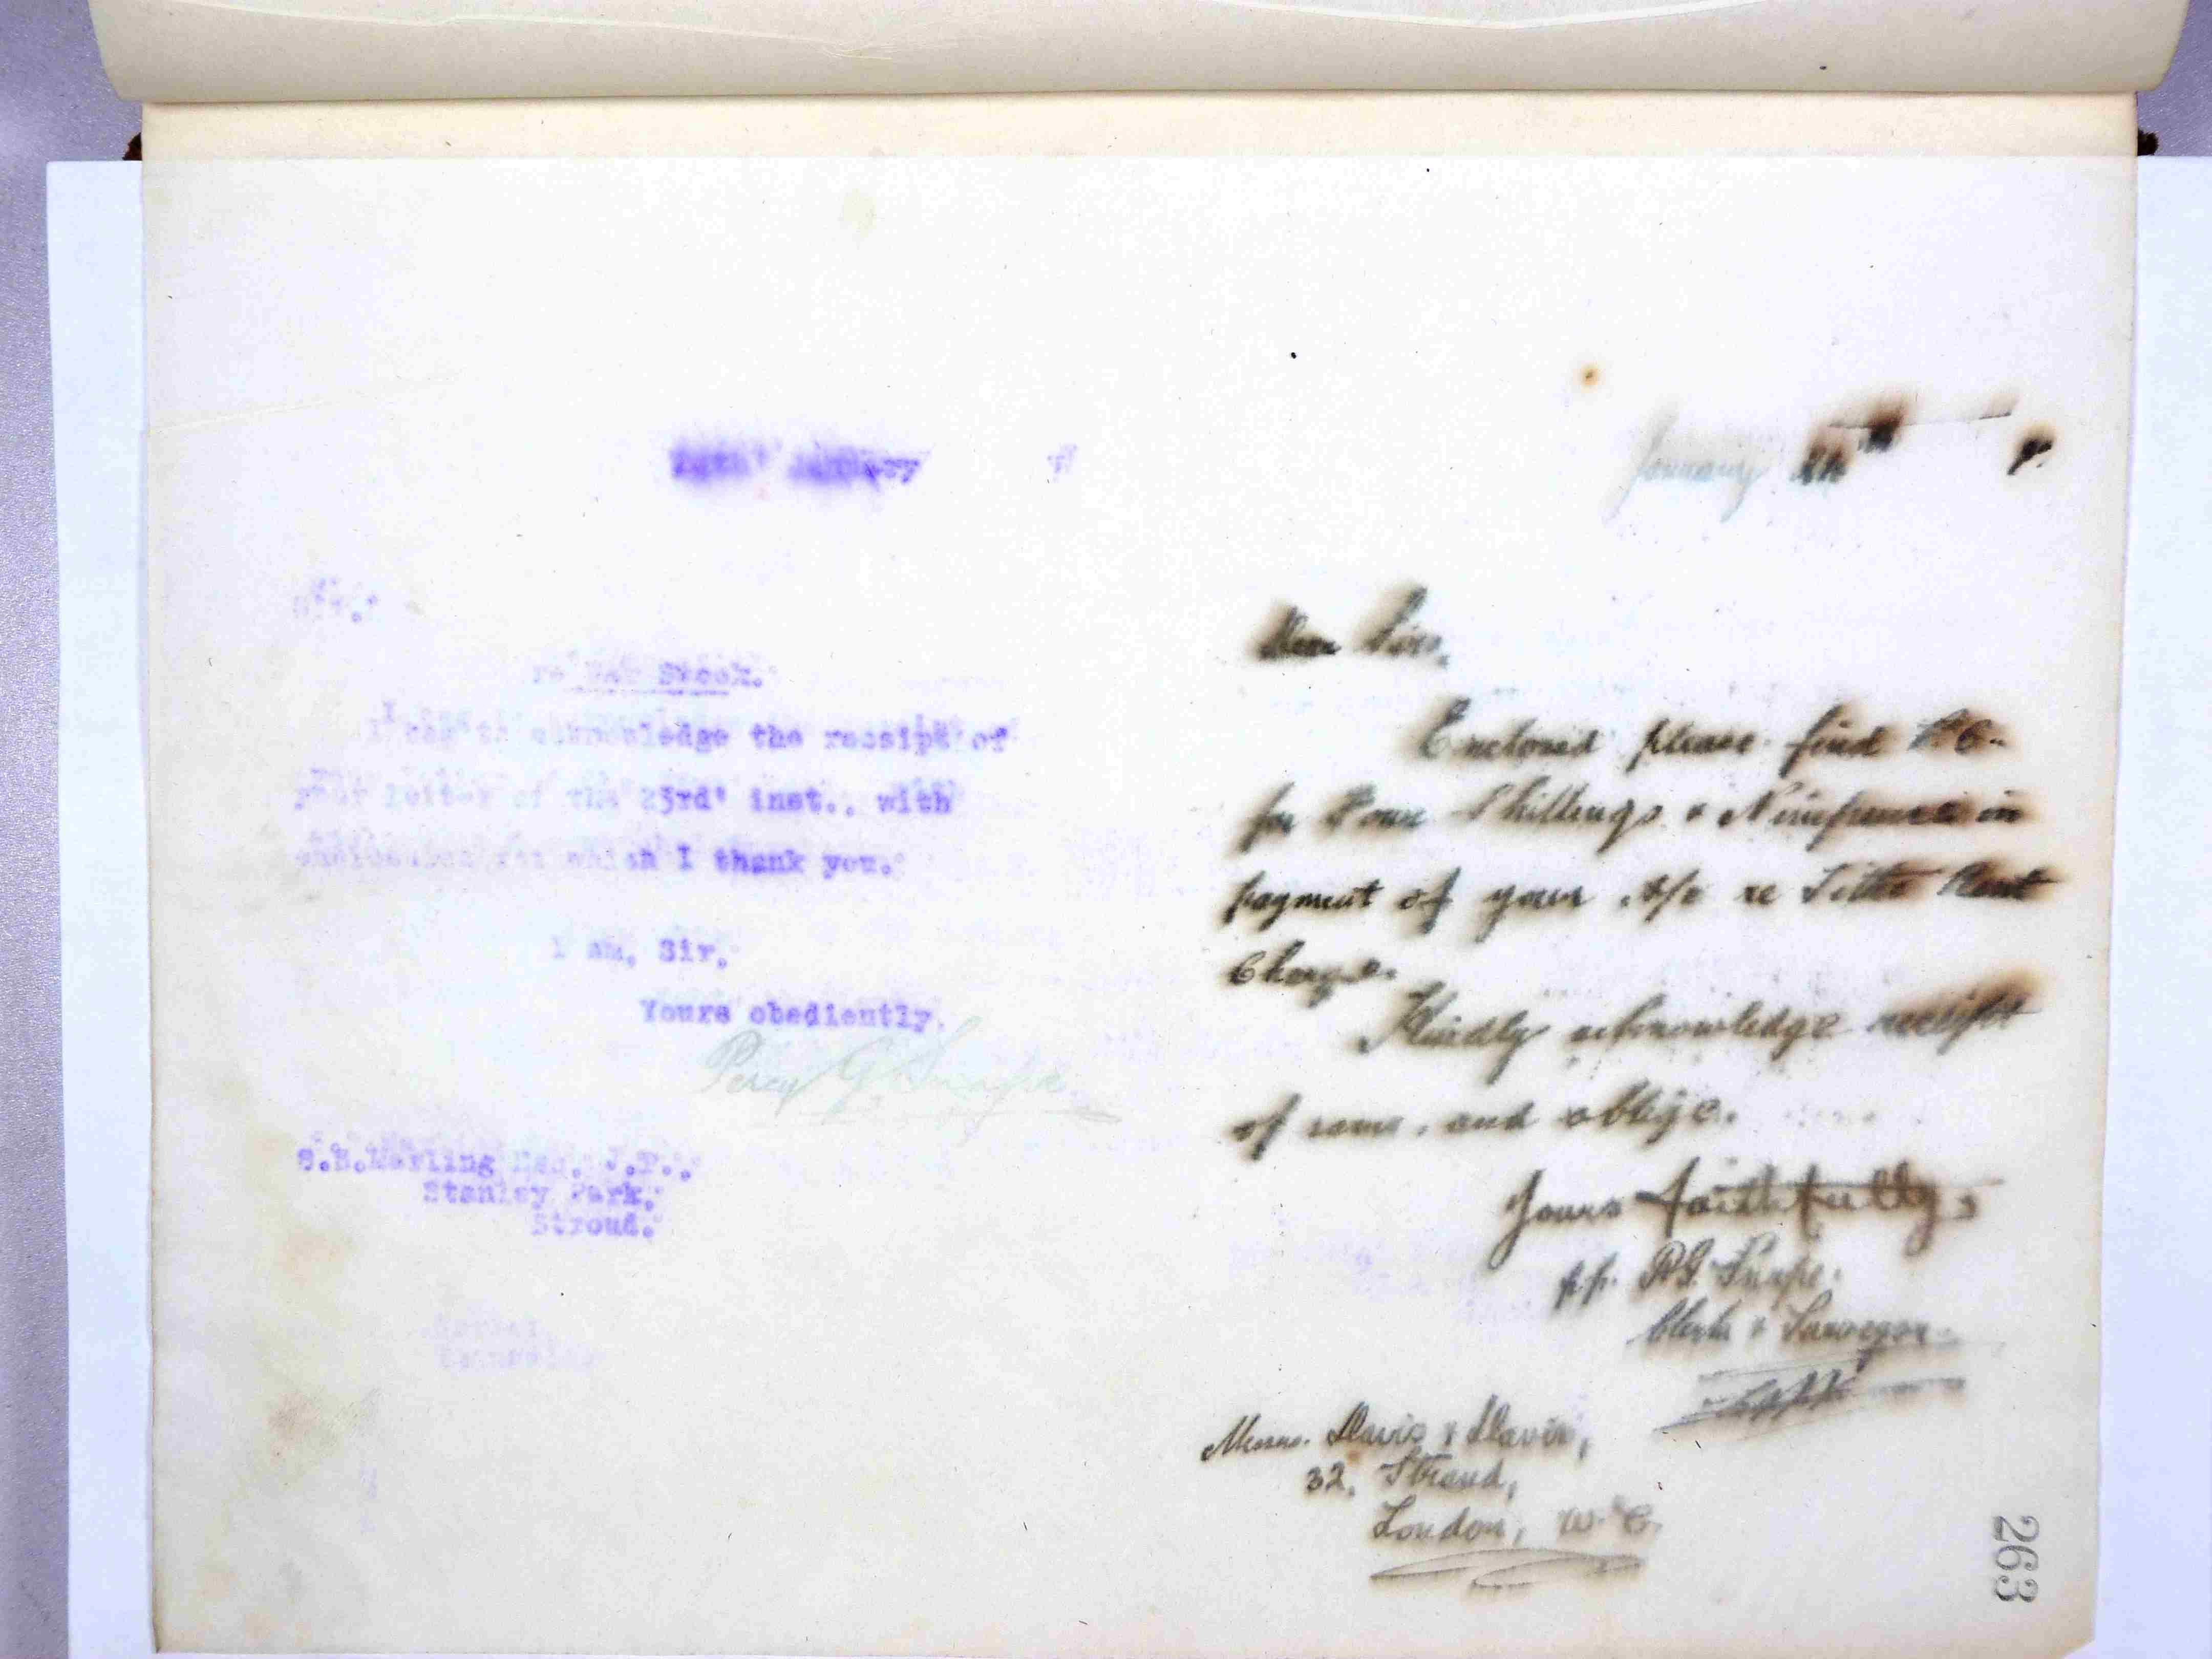 24th' January
Sir,
re War Stock.
I beg to acknowledge the receipt of
your letter of the 23rd' inst., with
enclosures for which I thank you.
I am, Sir,
Yours obediently,
Percy G. Snape
S.S.Marling Esq. J.P.,
Stanley Park,
Stroud.
January 24th
Dear Sirs,
Enclosed please find P.O.
for Four Shillings & Ninepence in
payment of your a/c re Tithe Rent
Charge.
Kindly acknowledge receipt
of same, and oblige.
Yours faithfully,
p.p. P.G. Snape.
Clerk & Surveyor.
Messrs. Davis & Davis,
32, Strand,
London, W.C.
263